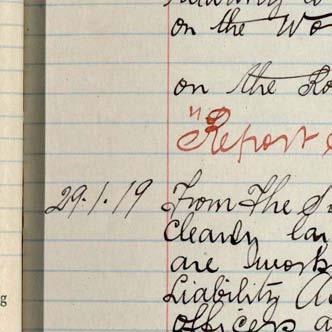 on the Wo
on the Ro
"Report
29.1.19 From The
Clearly lar
are work
Liability A
officers a
g